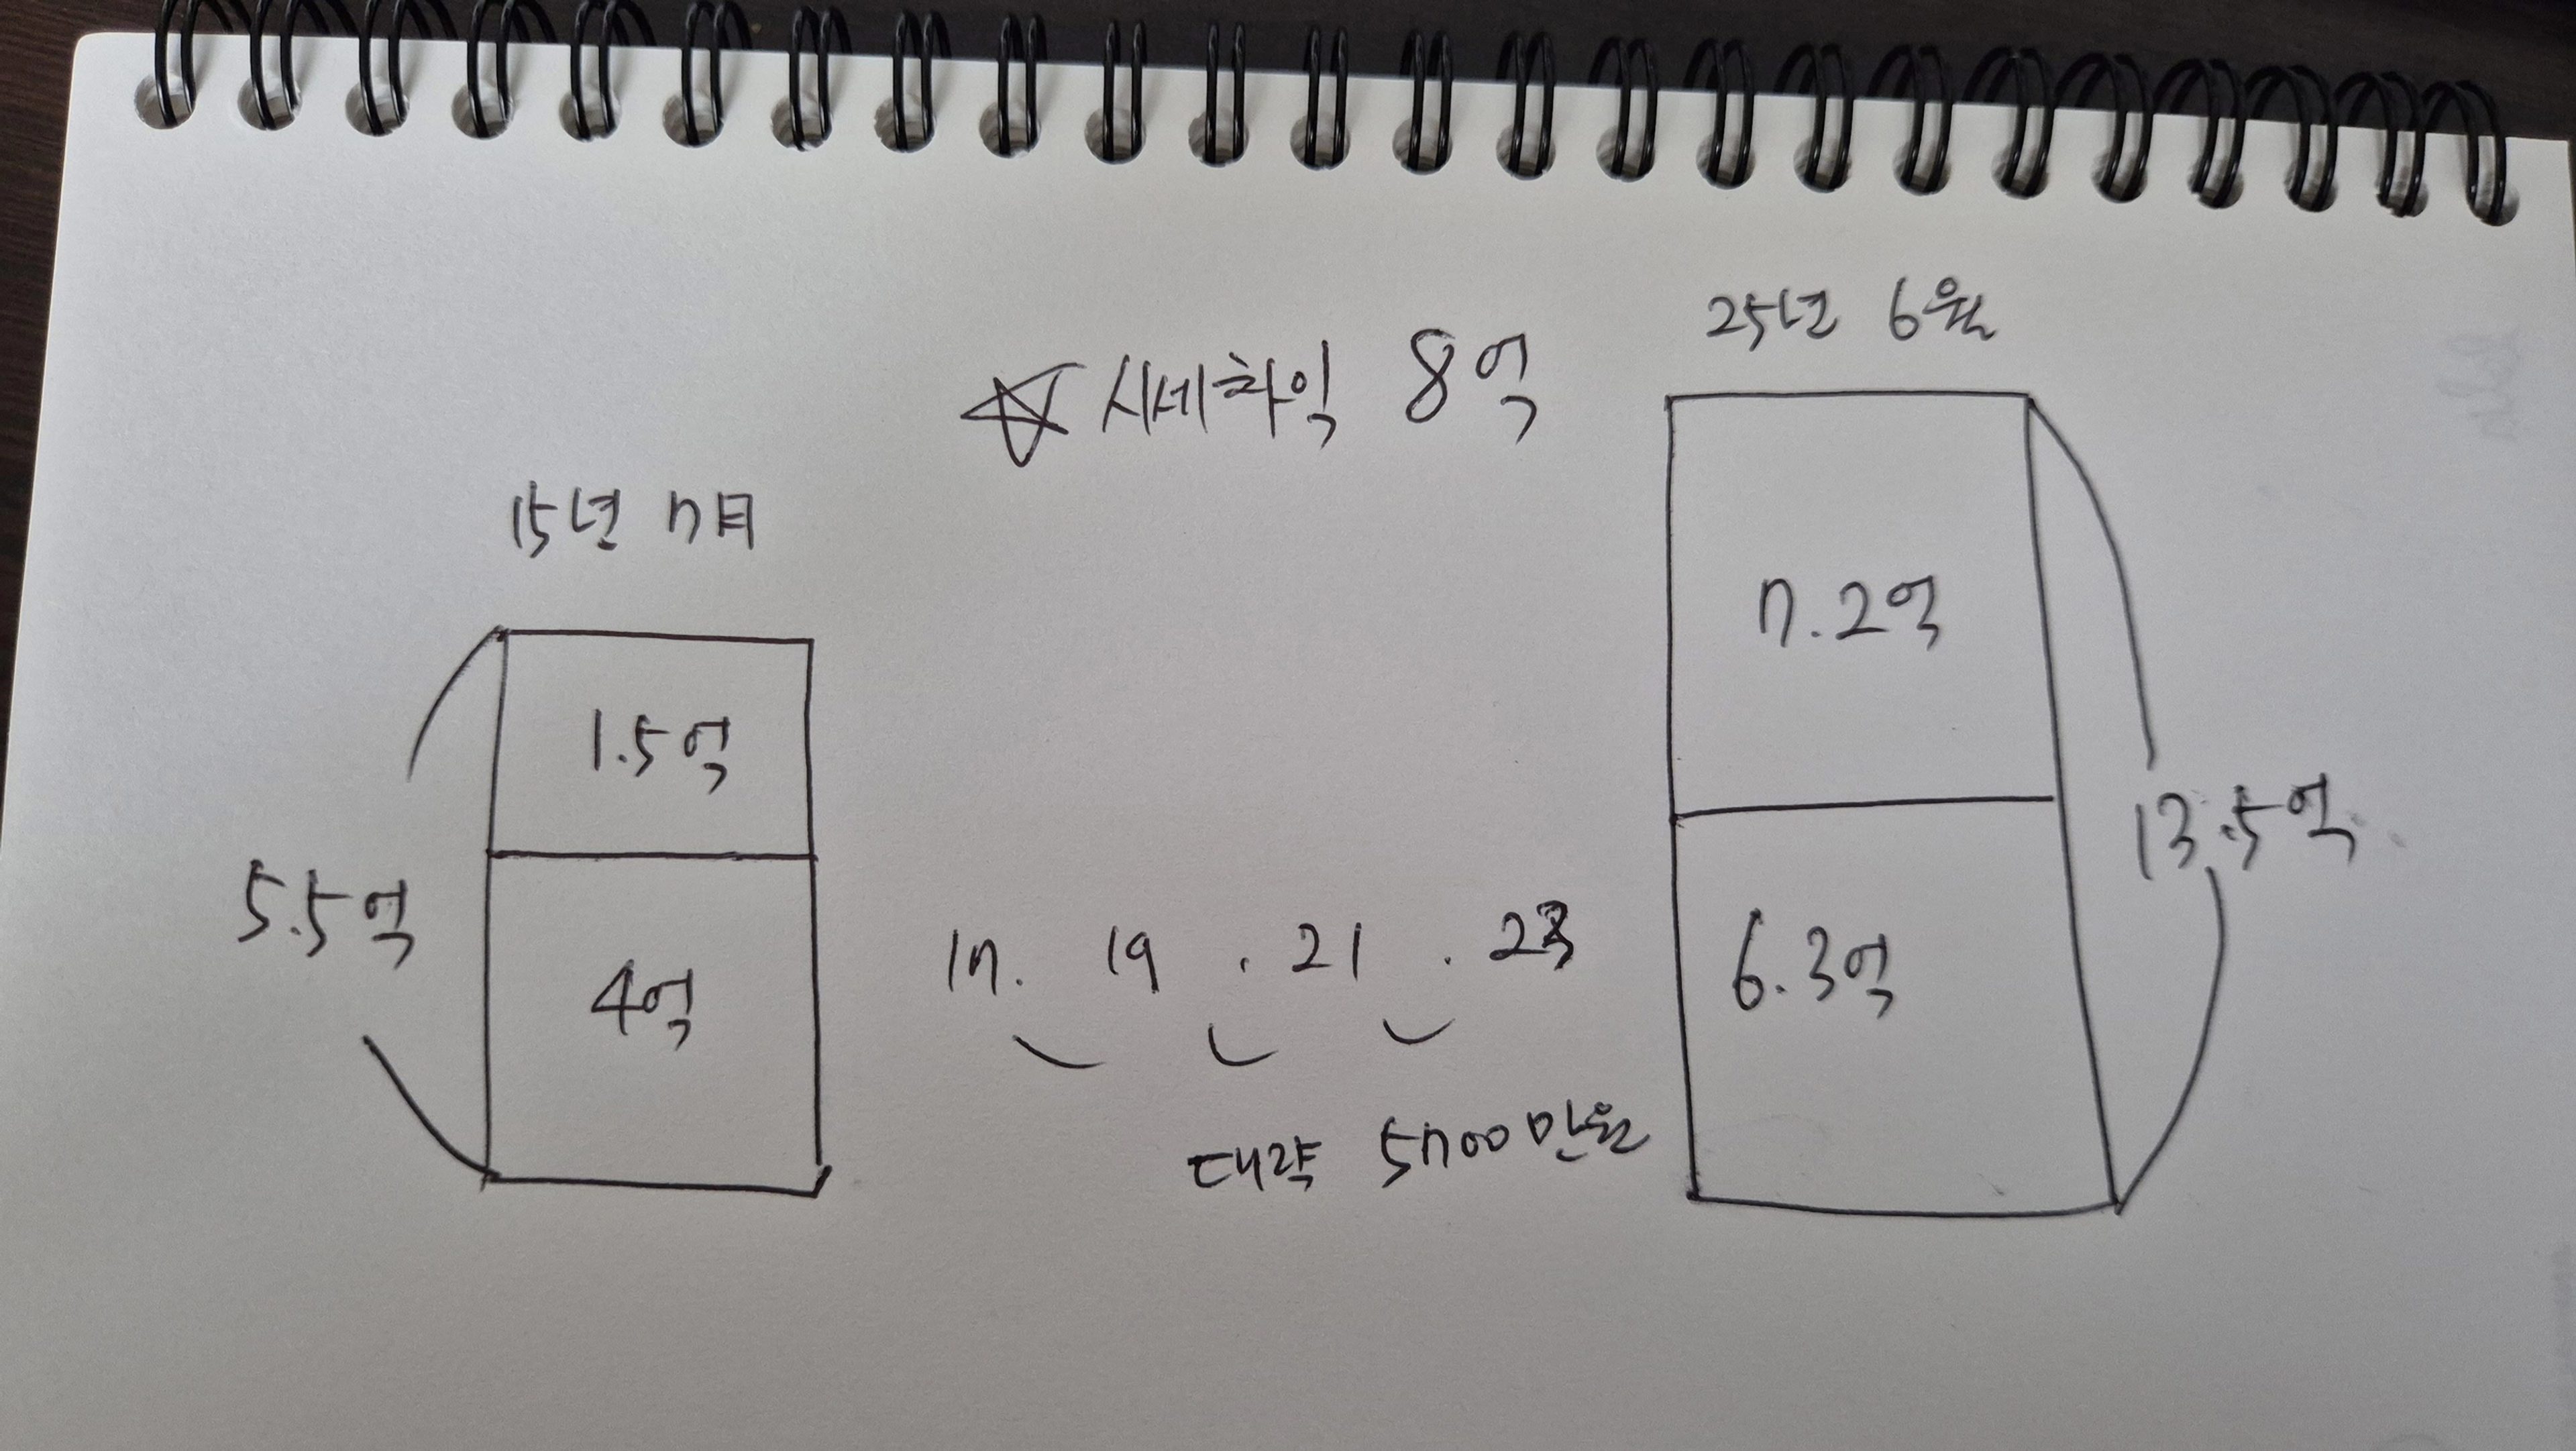 25년 6월
☆ 시세차익 8억
15년 7月
7.2억
1.5억
13.5억
5.5억
17. 19. 21. 23
6.3억
4억
대략 5700만원